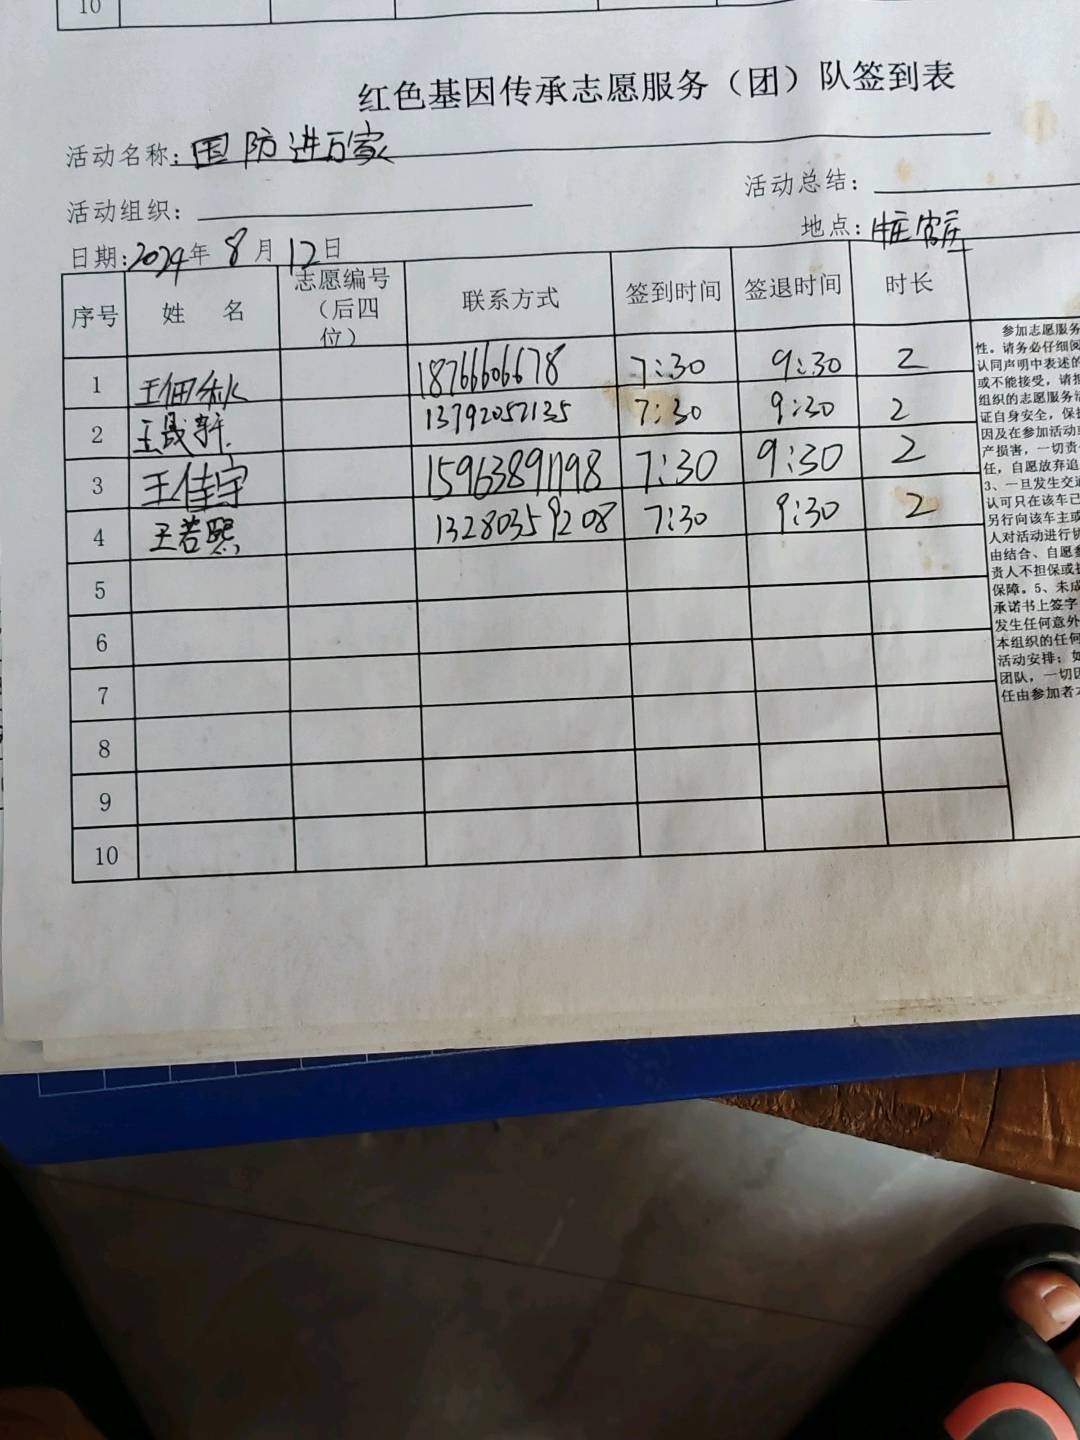 10
红色基因传承志愿服务（团）队签到表
活动名称：国防进万家
活动组织： 活动总结：
日期:2024年8月12日 地点:
序号 姓 名 志愿编号（后四位） 联系方式 签到时间 签退时间 时长
1 王佃秋 18766606678 7:30 9:30 2
2 王晟轩 13792052135 7:30 9:30 2
3 王佳宇 15963891798 7:30 9:30 2
4 王若熙 13280359208 7:30 9:30 2
5
6
7
8
9
10
参加志愿服务
性。请务必仔细阅
认同声明中表述的
或不能接受，请拒
组织的志愿服务活
证自身安全，保
因及在参加活动
产损害，一切责
任，自愿放弃追
3、一旦发生交通
认可只在该车已
另行向该车主或
人对活动进行协
由结合、自愿参
责人不担保或
保障。5、未成
承诺书上签字
发生任何意外
本组织的任何
活动安排；如
团队，一切因
任由参加者本